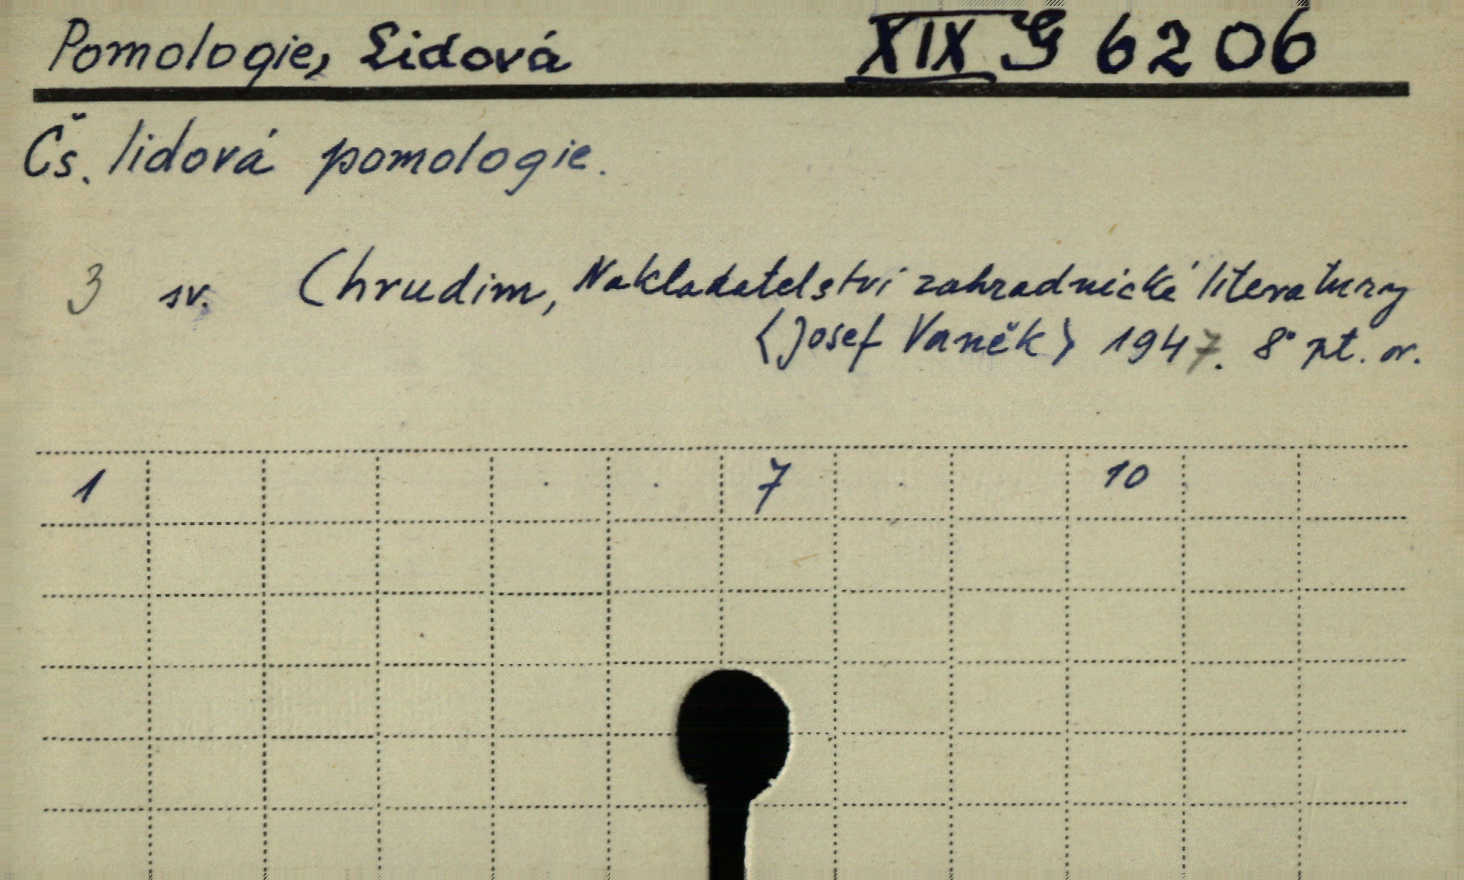 Pomologie, Lidová XIX G 6206
Čs. lidová pomologie.
3 sv. Chrudim, Nakladatelství zahradnické literatury
<Josef Vaněk> 1947. 8° pt. or.
1 7 10